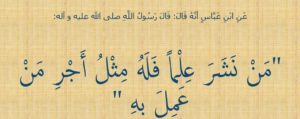 عَنِ ابْنِ عَبَّاسٍ أَنَّهُ قَالَ: قَالَ رَسُولُ اللّٰهِ صلى الله عليه و آله:
"مَنْ نَشَرَ عِلْماً فَلَهُ مِثْلُ أَجْرِ مَنْ
عَمِلَ بِهِ "